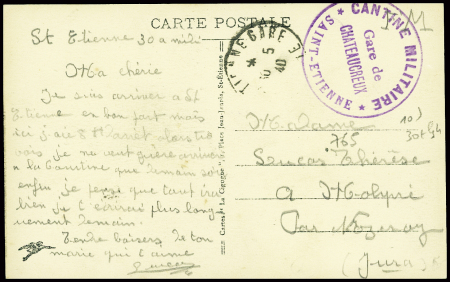 CARTE POSTALE
St Etienne 30 a midi
Ma chérie
Je suis arriver a St
Etienne en bon fait mais
ici j'ai 8 H d'arret alors tu
vois je ne veut guère arriver
a la Cantine que demain soir
enfin je pense que tout ira
bien je t'écrirai plus long
uement demain.
Tendre baisers de ton
marie qui t'aime
Cartes "La Cigogne", Place Jean Jaurès, St-Etienne
ETIENNE GARE
5
40
CANTINE MILITAIRE
Gare de
CHATEAUCREUX
SAINT-ETIENNE
Madame
765
Thérèse
a Molpré
Par Nozeroy
(Jura)